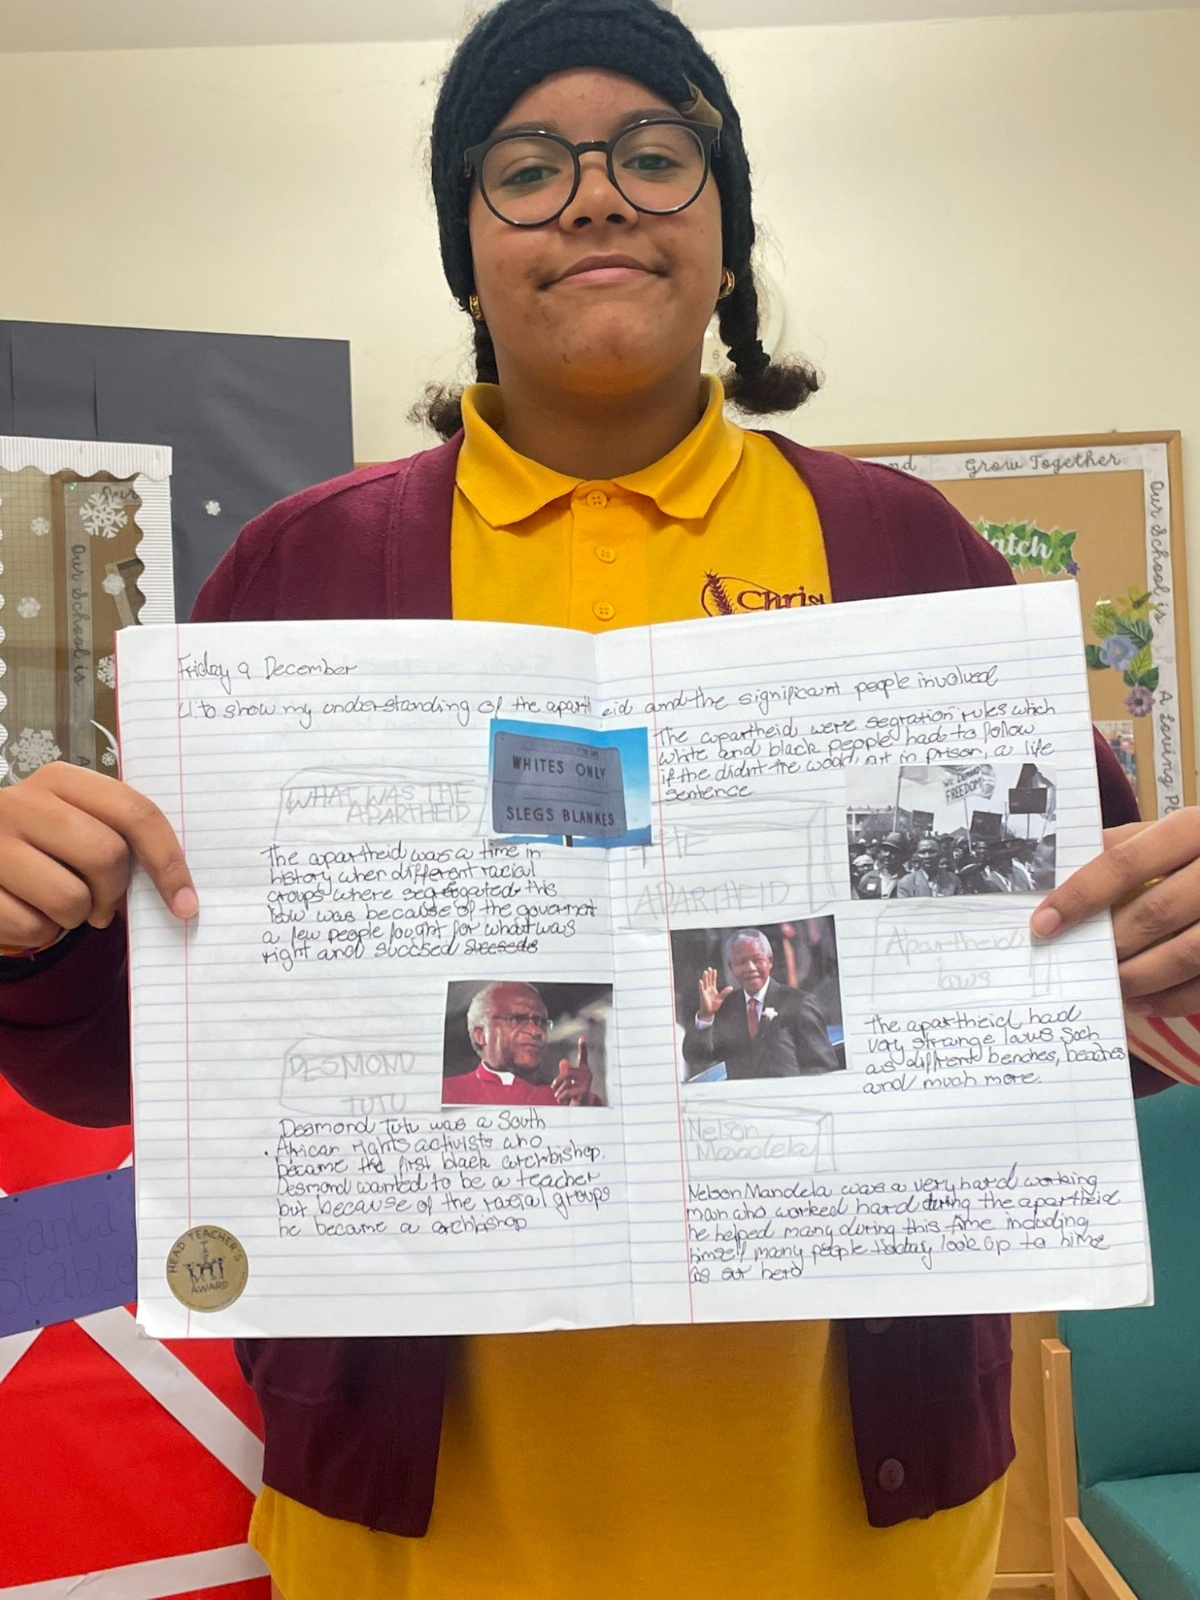 Chris
nd Grow Together
Our School is
A Loving Pl
atch
Our School is
A
Santa
6
Friday 9 December
LI to show my understanding of the apartheid and the significant people involved
WHITES ONLY
SLEGS BLANKES
WHAT WAS THE
APARTHEID
The apartheid was a time in
history when different racial
groups where segregated this
was because of the goverment
a few people fought for what was
right and succsed succseds
DESMOND
TUTU
Desmond Tutu was a South
African rights activists who
became the first black archbishop.
Desmond wanted to be a teacher
but because of the racial groups
he became a archbishop
HEAD TEACHER'S
AWARD
The apartheid were segration rules which
white and black people had to follow
if the didnt the woold, in prison, a life
sentence
WE DEMAND
FREEDOM
THE
APARTHEID
Apartheid
laws
The apartheid had
very strange laws Such
as different benches, beaches
and much more.
Nelson
Mandela
Nelson Mandela was a very hard working
man who worked hard during the apartheid
he helped many during this time including
himself many people today look up to him
as our hero